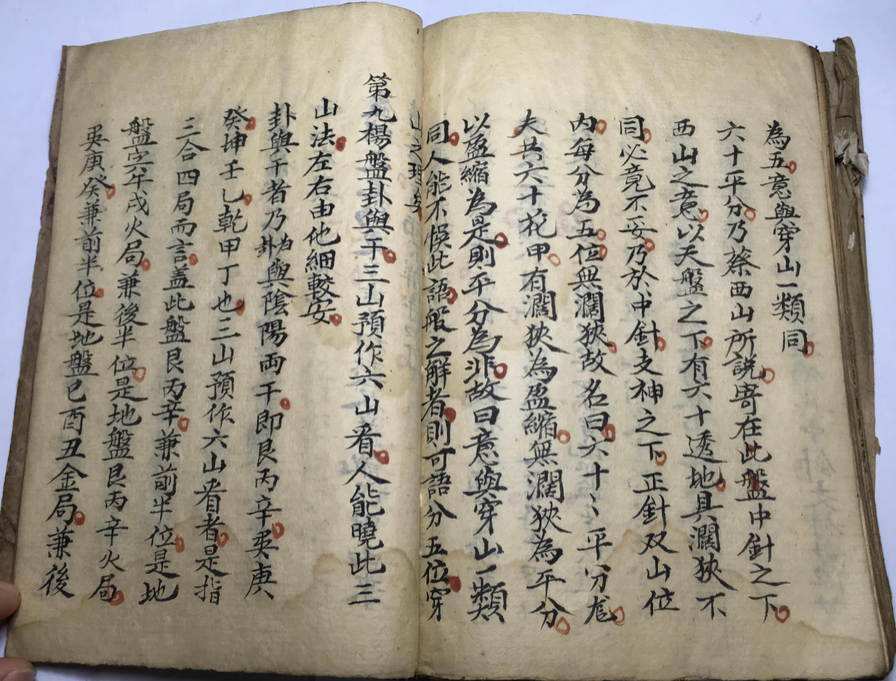 為五意與穿山一類同
六十平分乃蔡西山所說寄在此盤中針之下
西山之意以天盤之下有六十透地具濶狹不
同必竟不妥乃於中針支神之下正針双山位
內每分為五位無濶狹故名曰六十〻平分尨
夫共六十花甲有濶狹為盈縮無濶狹為平分
以盈縮為是則平分為非故曰意與穿山一類
同人能不悞此語般之解者則可語分五位穿
山之理矣
第九楊盤卦與干三山預作六山看人能曉此三
山法左右由他細較安
卦與干者乃卦為與陰陽両干即艮丙辛巽庚
癸坤壬乙乾甲丁也三山預作六山看者是指
三合四局而言盖此盤艮丙辛兼前半位是地
盤寅午戌火局兼後半位是地盤艮丙辛火局
巽庚癸兼前半位是地盤巳酉丑金局兼後